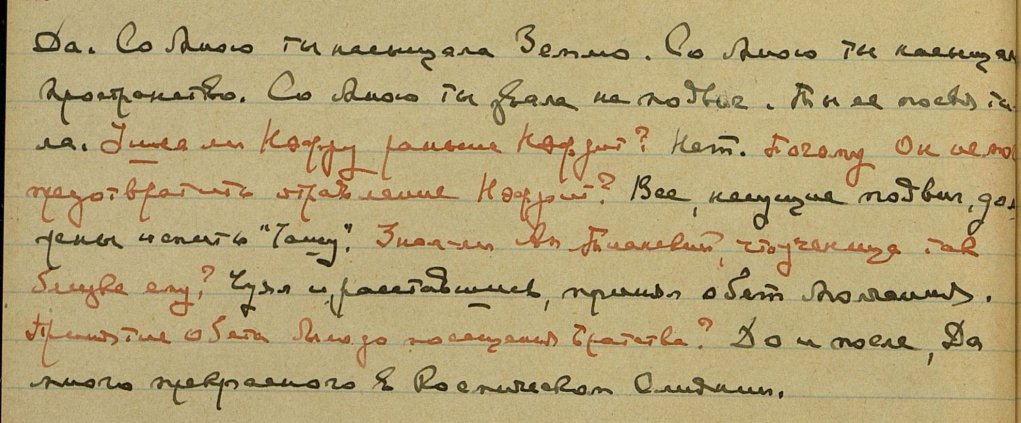 Да. Со Мною ты насыщала Землю. Со Мною ты насыщал
пространство. Со Мною ты звала на подвиг. Ты ее посети-
ла. Ушла ли Нефру раньше Нефрит? Нет. Почему Он не мог
предотвратить отравление Нефрит? Все, несущие подвиг, дол
жены испить "Чашу". Знал-ли Ап. Тианский, что ученица так
близка ему? Чуял и, расставшись, принял обет молчания.
Принятие обета было до посещения Братства? До и после, Да
много прекрасного в Космическом Слиянии.